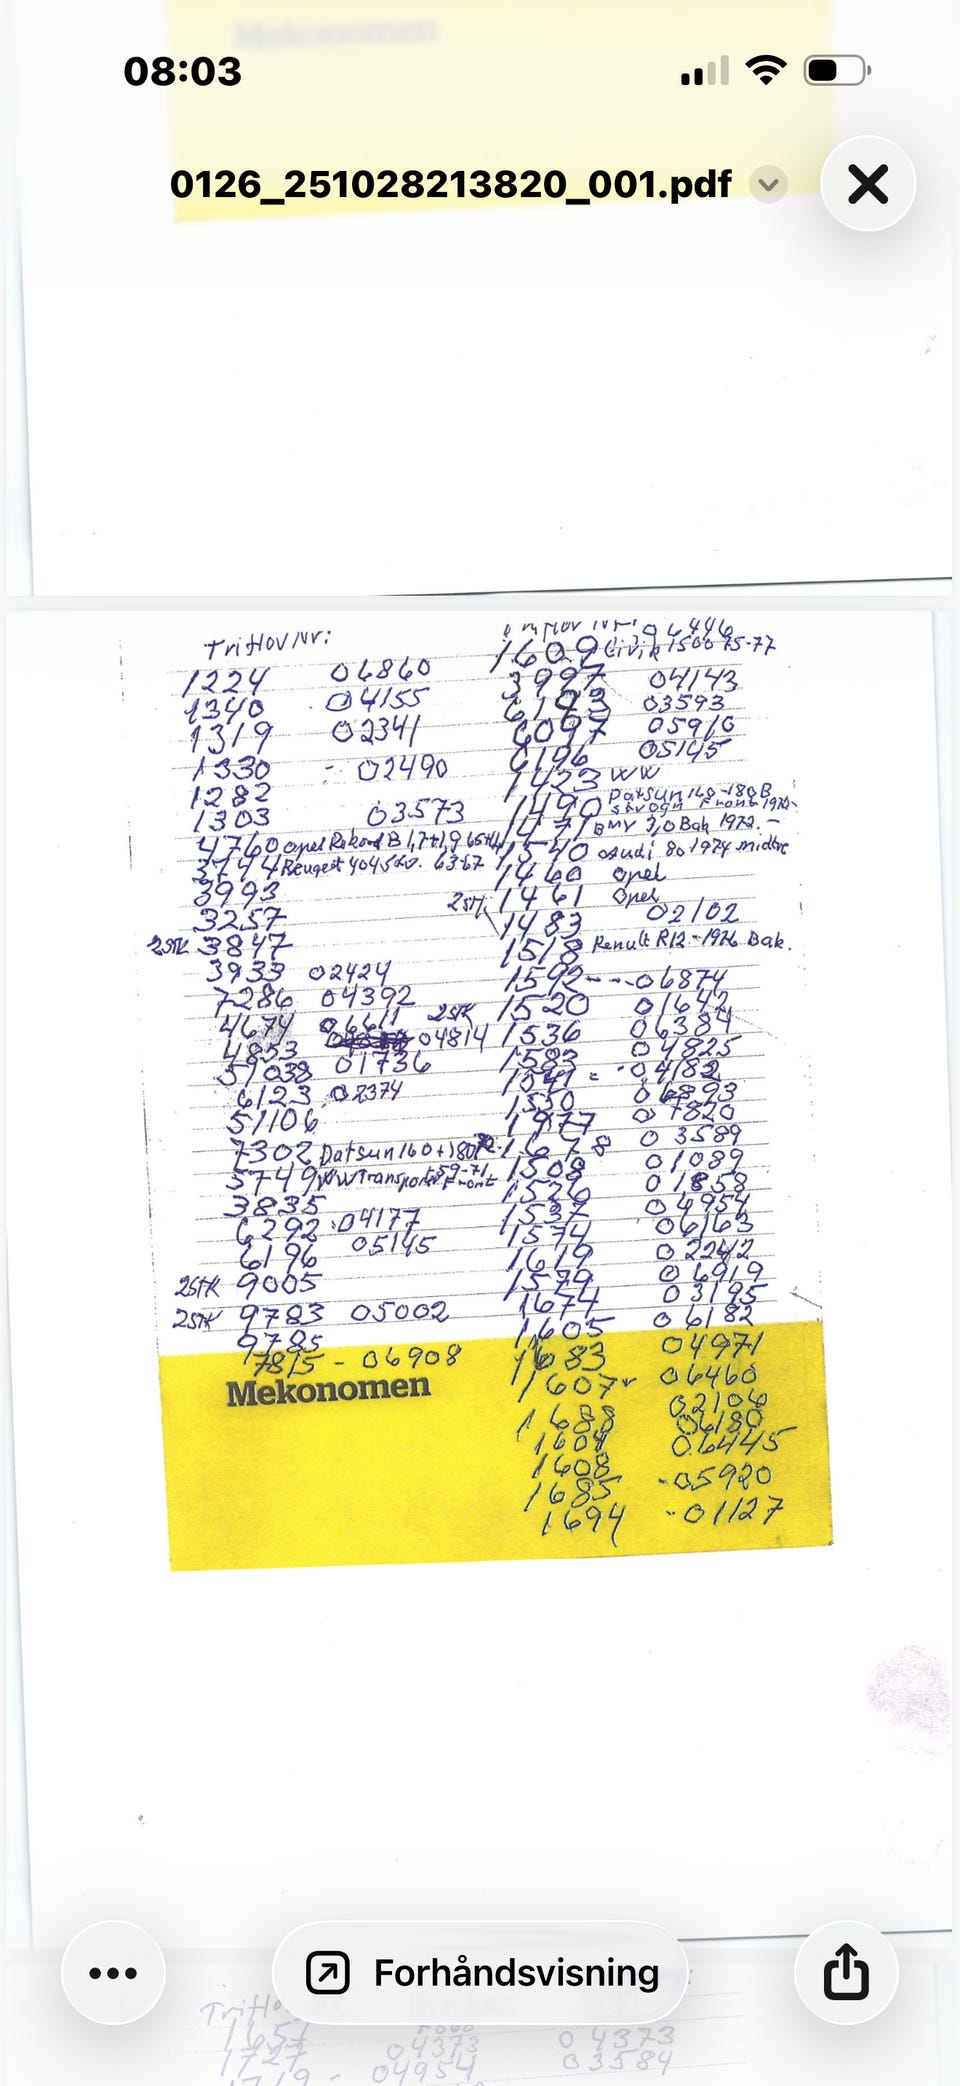 Mekonomen
08:03
0126_251028213820_001.pdf
TriflovNr:
1224 06860
1340 04155
1319 02341
1330 - 02490
1282
1303 03573
4760 opel Rekord B 1,7+1,9 65+
3744 Peugeot 404 560. 63-67
3993
3257
2STK 3847
3933 02424
7286 04392
4674 06611
4853 04814
51038 01736
6123 02374
51106
7302 Datsun 160+180
5749 WW Transporter 59-71 Front
3835
6292 04177
6196 05145
2STK 9005
2STK 9783 05002
9785
7815 - 06908
Mekonomen
06446
1609 Civik 1500 75-77
3997 04143
6193 03593
6097 05910
6196 05145
1423 WW
1490 Datsun 140-180B
Front 1972-
1471 BMV 3,0 Bak 1972. -
1540 Audi 80 1974 midtre
1460 Opel
2STK 1461 Opel
1483 02102
1518 Renult R12 - 1976 Bak.
1592 --- 06874
2STK 1520 01642
1536 06384
1583 04825
1541 = 04182
1550 06893
1977 07820
1678 03589
1508 01089
1526 01858
1537 04954
1574 06163
1619 02242
1579 06919
1674 03195
1605 06182
1683 04971
1607 06460
1688 02106
1604 06180
1608 06445
1685 - 05920
1694 - 01127
Forhåndsvisning
1657 04373 04373
1727 04954 03584